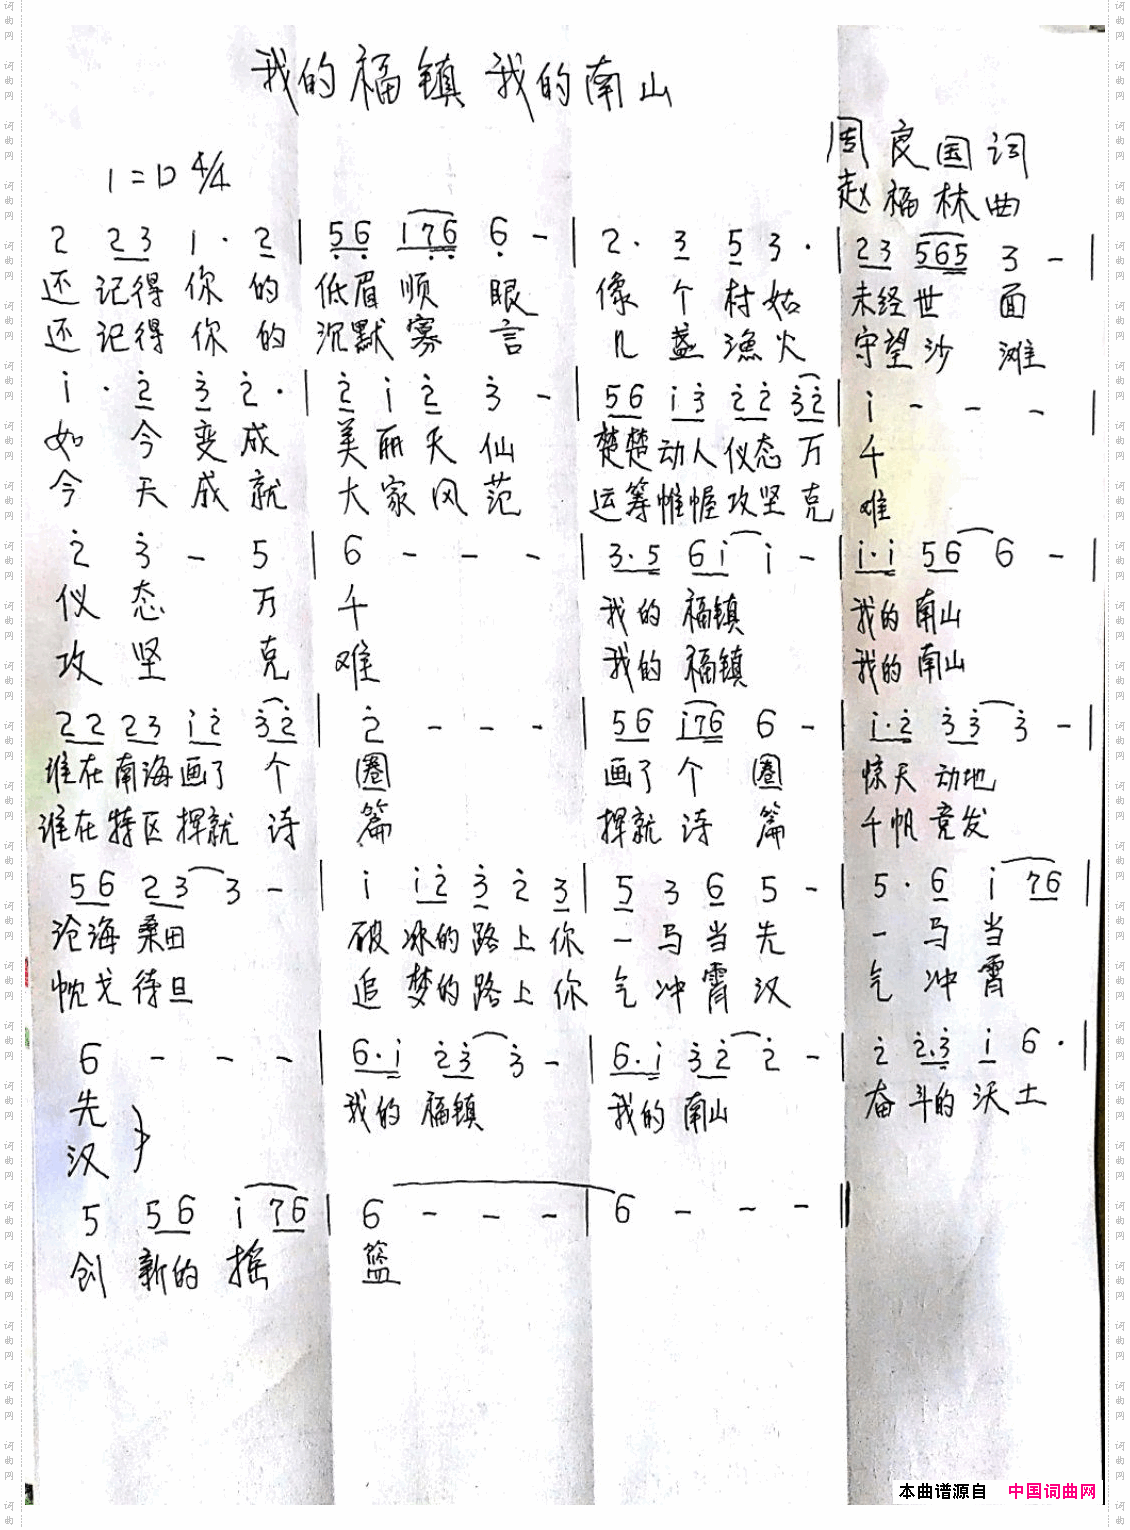 我的福镇 我的南山
周良国词
1=D 4/4
赵福林曲
2 23 1· 2 | 56 176 6 - | 2· 3 5 3· | 23 565 3 - |
还记得你的 低眉顺眼 像个村姑 未经世面
还记得你的 沉默寡言 几盏渔火 守望沙滩
i· 2 3 2· | 2 i 2 3 - | 56 i3 22 32 | i - - - |
如今变成 美丽天仙 楚楚动人仪态万 千
今天成就 大家风范 运筹帷幄攻坚克 难
2 3 - 5 | 6 - - - | 3·5 6i i - | i·i 56 6 - |
仪态 万 千 我的福镇 我的南山
攻坚 克 难 我的福镇 我的南山
22 23 i2 32 | 2 - - - | 56 i76 6 - | i·2 33 3 - |
谁在南海画了个 圈 画了个圈 惊天动地
谁在特区挥就诗 篇 挥就诗篇 千帆竞发
56 23 3 - | i i2 3 2 3 | 5 3 6 5 - | 5· 6 i 76 |
沧海桑田 破冰的路上你 一马当先 一马当
枕戈待旦 追梦的路上你 气冲霄汉 气冲霄
6 - - - | 6·i 23 3 - | 6·i 32 2 - | 2 2·3 i 6· |
先 我的福镇 我的南山 奋斗的沃土
汉
5 56 i 76 | 6 - - - | 6 - - - ‖
创新的摇 篮
本曲谱源自 中国词曲网